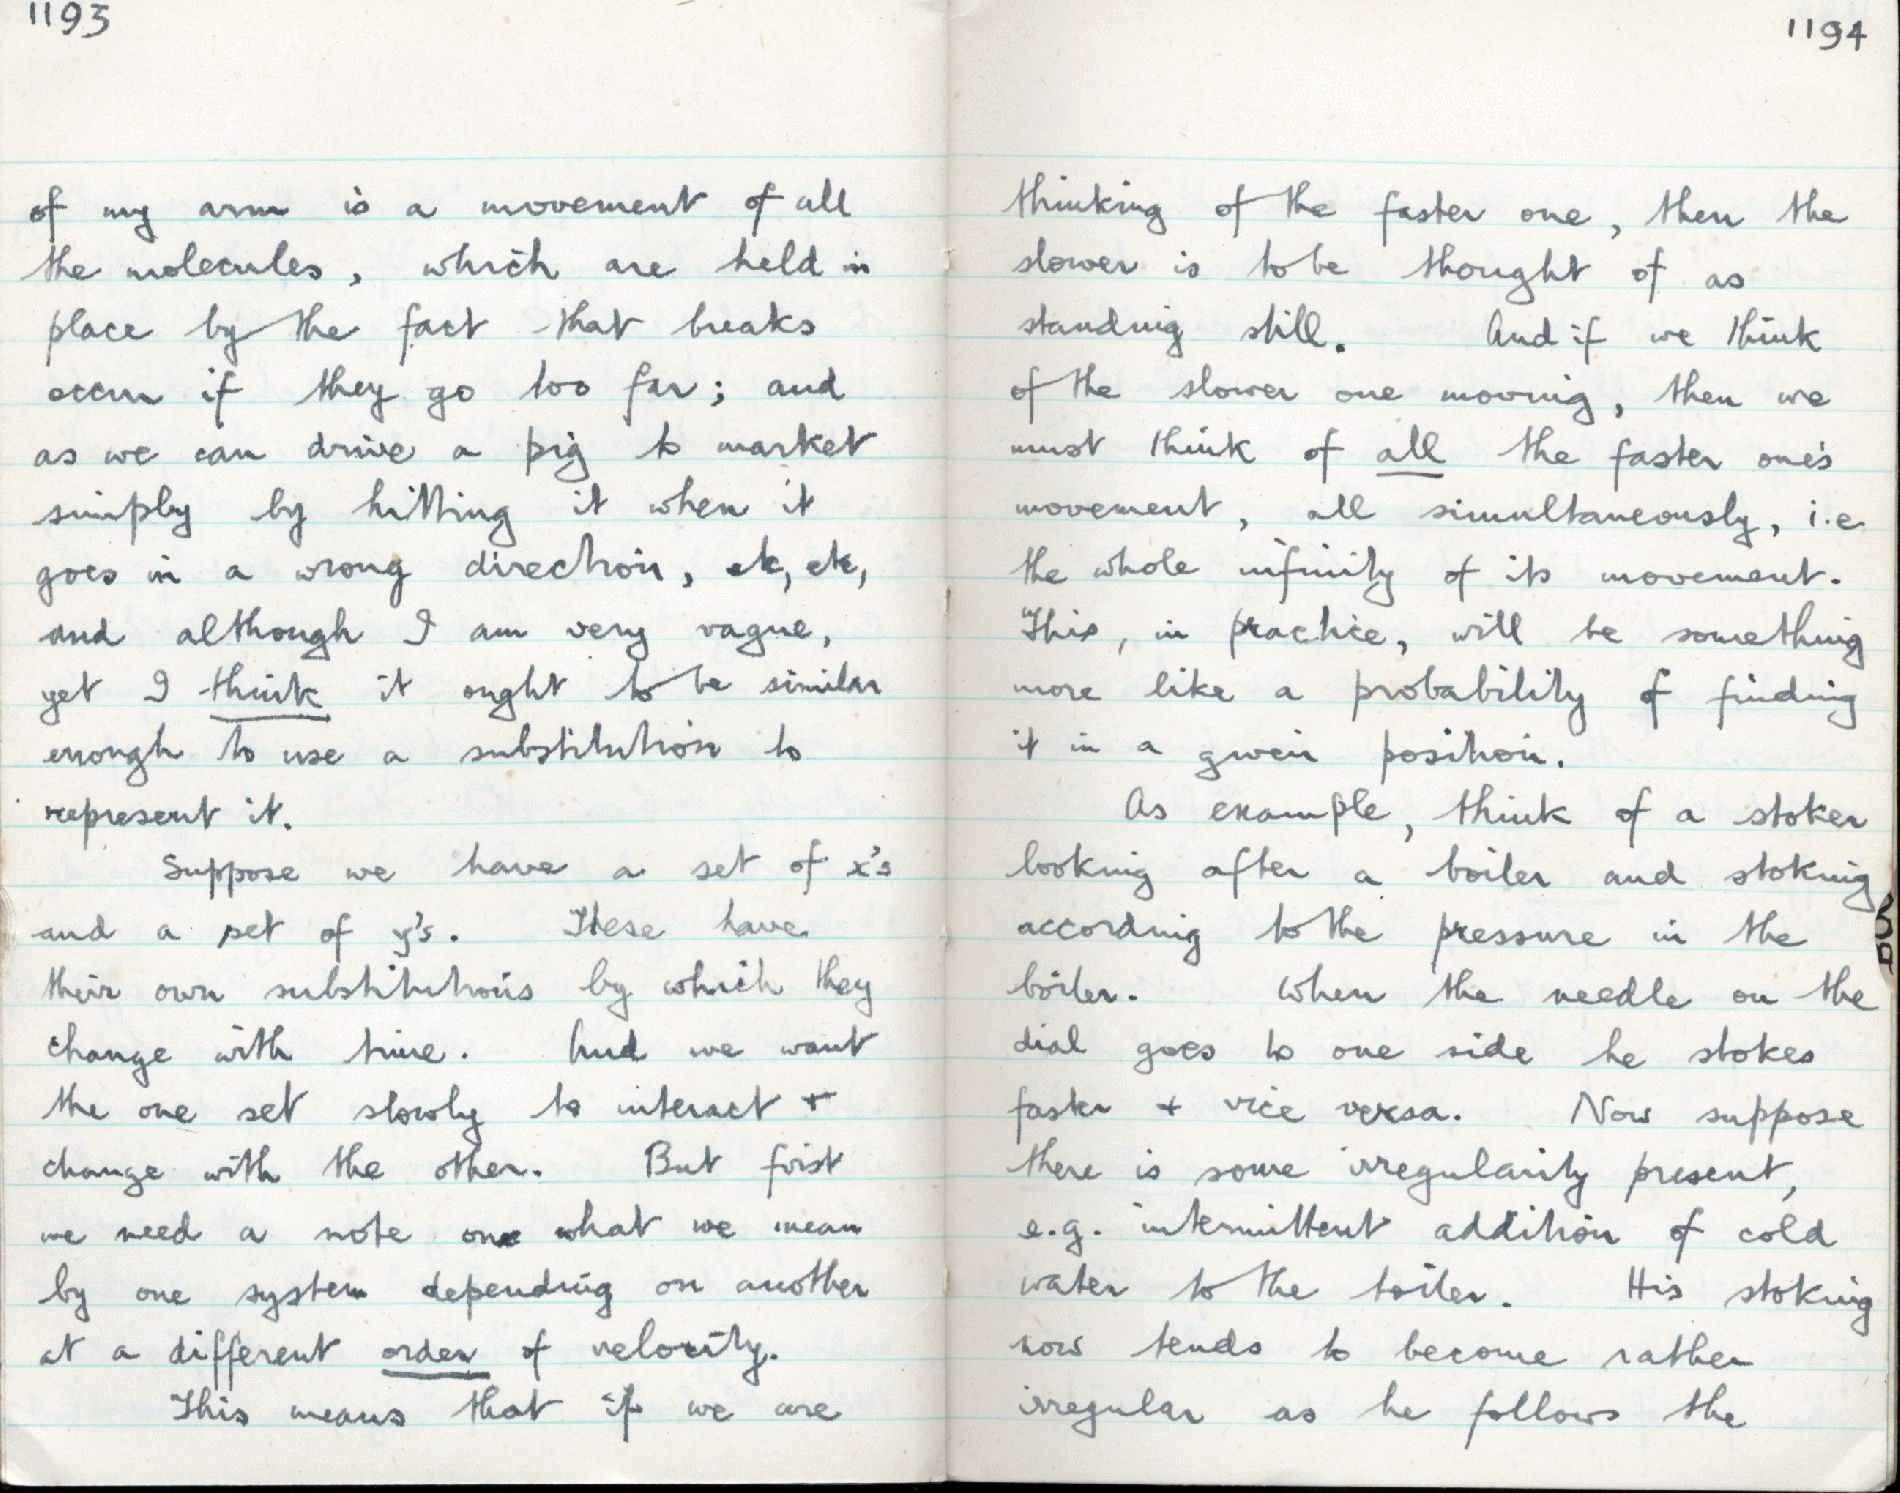 1193
of my arm is a movement of all
the molecules, which are held in
place by the fact that breaks
occur if they go too far; and
as we can drive a pig to market
simply by hitting it when it
goes in a wrong direction, etc, etc,
and although I am very vague,
yet I think it ought to be similar
enough to use a substitution to
represent it.
Suppose we have a set of x's
and a set of y's. These have
their own substitutions by which they
change with time. And we want
the one set slowly to interact +
change with the other. But first
we need a note on what we mean
by one system depending on another
at a different order of velocity.
This means that if we are
1194
thinking of the faster one, then the
slower is to be thought of as
standing still. And if we think
of the slower one moving, then we
must think of all the faster one's
movement, all simultaneously, i.e.
the whole infinity of its movement.
This, in practice, will be something
more like a probability of finding
it in a given position.
As example, think of a stoker
looking after a boiler and stoking
according to the pressure in the
boiler. When the needle on the
dial goes to one side he stokes
faster + vice versa. Now suppose
there is some irregularity present,
e.g. intermittent addition of cold
water to the boiler. His stoking
now tends to become rather
irregular as he follows the